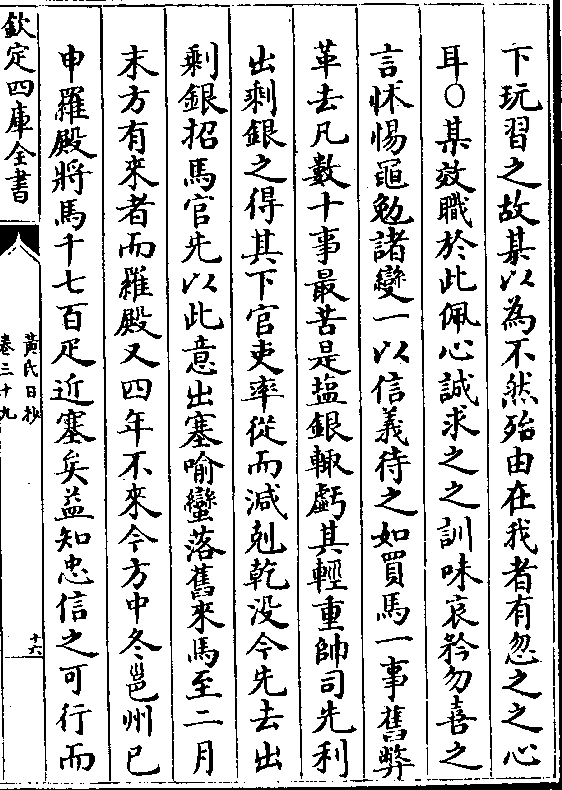 下玩習之故某以為不然殆由在我者有忽之之心
耳○某效職於此佩心誠求之之訓味哀矜勿喜之
言怵惕黽勉諸變一以信義待之如買馬一事舊弊
革去凡數十事最苦是塩銀輙虧其輕重帥司先利
出剩銀之得其下官吏率從而減剋乾没今先去出
剩銀招馬官先以此意出塞喻蠻落舊來馬至二月
末方有来者而羅殿又四年不來今方中冬邕州已
申羅殿將馬千七百疋近塞矣益知忠信之可行而
欽定四庫全書
黄氏日抄
卷三十九
十六